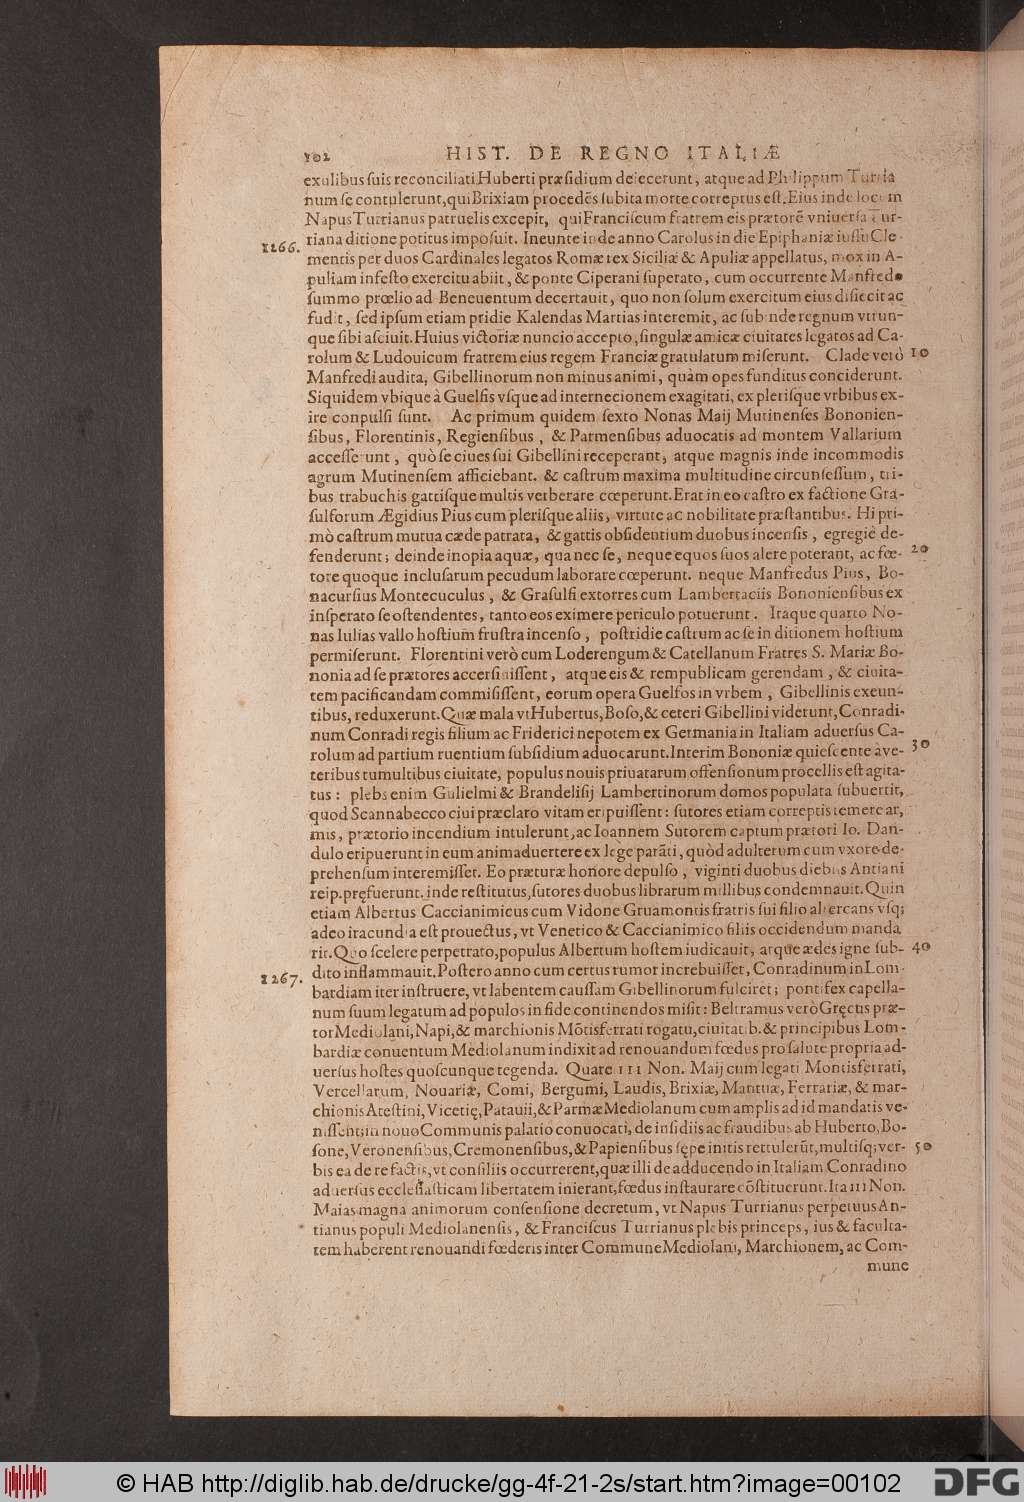 102 HIST. DE REGNO ITALIÆ
exulibus suis reconciliati Huberti præsidium deiecerunt, atque ad Philippum Turria
num se contulerunt, qui Brixiam procedẽs subita morte correptus est. Eius inde locum
Napus Turrianus patruelis excepit, qui Franciscum fratrem eis prætorẽ vniuersa Tur-
1266. riana ditione potitus imposuit. Ineunte inde anno Carolus in die Epiphaniæ iussu Cle-
mentis per duos Cardinales legatos Romæ rex Siciliæ & Apuliæ appellatus, mox in A-
puliam infesto exercitu abiit, & ponte Ciperani superato, cum occurrente Manfredo
summo prœlio ad Beneuentum decertauit, quo non solum exercitum eius disiecit ac
fudit, sed ipsum etiam pridie Kalendas Martias interemit, ac subinde regnum vtrun-
que sibi asciuit. Huius victoriæ nuncio accepto, singulæ amicæ ciuitates legatos ad Ca-
rolum & Ludouicum fratrem eius regem Franciæ gratulatum miserunt. Clade verò 10
Manfredi audita, Gibellinorum non minus animi, quàm opes funditus conciderunt.
Siquidem vbique à Guelfis vsque ad internecionem exagitati, ex plerisque vrbibus ex-
ire conpulsi sunt. Ac primum quidem sexto Nonas Maij Mutinenses Bononien-
sibus, Florentinis, Regiensibus, & Parmensibus aduocatis ad montem Vallarium
accesserunt, quò se ciues sui Gibellini receperant, atque magnis inde incommodis
agrum Mutinensem afficiebant. & castrum maxima multitudine circunsessum, tri-
bus trabuchis gattisque multis verberare cœperunt. Erat in eo castro ex factione Gra-
sulforum Ægidius Pius cum plerisque aliis, virtute ac nobilitate præstantibus. Hi pri-
mò castrum mutua cæde patrata, & gattis obsidentium duobus incensis, egregiè de-
fenderunt; deinde inopia aquæ, qua nec se, neque equos suos alere poterant, ac fœ- 20
tore quoque inclusarum pecudum laborare cœperunt. neque Manfredus Pius, Bo-
nacursius Montecuculus, & Grasulfi extorres cum Lambertaciis Bononiensibus ex
insperato se ostendentes, tanto eos eximere periculo potuerunt. Itaque quarto No-
nas Iulias vallo hostium frustra incenso, postridie castrum ac se in ditionem hostium
permiserunt. Florentini verò cum Loderengum & Catellanum Fratres S. Mariæ Bo-
nonia ad se prætores accersiuissent, atque eis & rempublicam gerendam, & ciuita-
tem pacificandam commisissent, eorum opera Guelfos in vrbem, Gibellinis exeun-
tibus, reduxerunt. Quæ mala vt Hubertus, Boso, & ceteri Gibellini viderunt, Conradi-
num Conradi regis filium ac Friderici nepotem ex Germania in Italiam aduersus Ca-
rolum ad partium ruentium subsidium aduocarunt. Interim Bononiæ quiescente à ve- 30
teribus tumultibus ciuitate, populus nouis priuatarum offensionum procellis est agita-
tus: plebs enim Gulielmi & Brandelisij Lambertinorum domos populata subuertit,
quod Scannabecco ciui præclaro vitam eripuissent: sutores etiam correptis temere ar,
mis, prætorio incendium intulerunt, ac Ioannem Sutorem captum prætori Io. Dan-
dulo eripuerunt in eum animaduertere ex lege parãti, quòd adulterum cum vxore de-
prehensum interemisset. Eo præturæ honore depulso, viginti duobus diebus Antiani
reip. pręfuerunt. inde restitutus, sutores duobus librarum millibus condemnauit. Quin
etiam Albertus Caccianimicus cum Vidone Gruamontis fratris sui filio altercans vsq;
adeo iracundia est prouectus, vt Venetico & Caccianimico filiis occidendum manda
rit. Quo scelere perpetrato, populus Albertum hostem iudicauit, atque ædes igne sub- 40
1267. dito inflammauit. Postero anno cum certus rumor increbuisset, Conradinum in Lom-
bardiam iter instruere, vt labentem caussam Gibellinorum fulciret; pontifex capella-
num suum legatum ad populos in fide continendos misit: Beltramus verò Gręcus præ-
tor Mediolani, Napi, & marchionis Mõtisferrati rogatu, ciuitatib. & principibus Lom-
bardiæ conuentum Mediolanum indixit ad renouandum fœdus pro salute propria ad-
uersus hostes quoscunque tegenda. Quare III Non. Maij cum legati Montisferrati,
Vercellarum, Nouariæ, Comi, Bergumi, Laudis, Brixiæ, Mantuæ, Ferrariæ, & mar-
chionis Atestini, Vicetię, Patauii, & Parmæ Mediolanum cum amplis ad id mandatis ve-
nissent; in nouo Communis palatio conuocati, de insidiis ac fraudibus ab Huberto, Bo-
sone, Veronensibus, Cremonensibus, & Papiensibus sępe initis rettulerũt, multisq; ver- 50
bis ea de re factis, vt consiliis occurrerent, quæ illi de adducendo in Italiam Conradino
aduersus ecclesiasticam libertatem inierant, fœdus instaurare cõstituerunt. Ita III Non.
Maias magna animorum consensione decretum, vt Napus Turrianus perpetuus An-
tianus populi Mediolanensis, & Franciscus Turrianus plebis princeps, ius & faculta-
tem haberent renouandi fœderis inter Commune Mediolani, Marchionem, ac Com-
mune
© HAB http://diglib.hab.de/drucke/gg-4f-21-2s/start.htm?image=00102 DFG